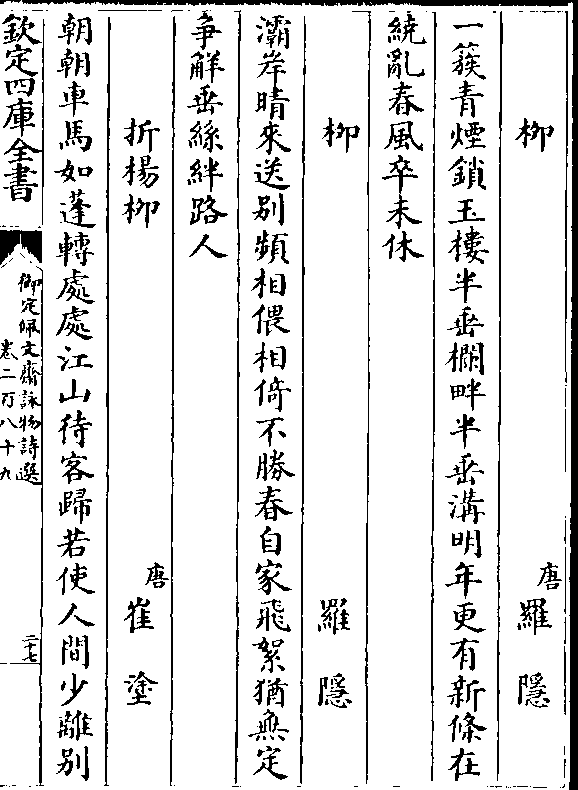 柳　唐羅隱
一簇青煙鎖玉樓半垂欄畔半垂溝明年更有新條在
繞亂春風卒未休
柳　羅隱
灞岸晴來送別頻相偎相倚不勝春自家飛絮猶無定
爭解垂絲絆路人
折楊柳　唐崔塗
朝朝車馬如蓬轉處處江山待客歸若使人間少離別
欽定四庫全書
御定佩文齋詠物詩選
卷二百八十九
二十七